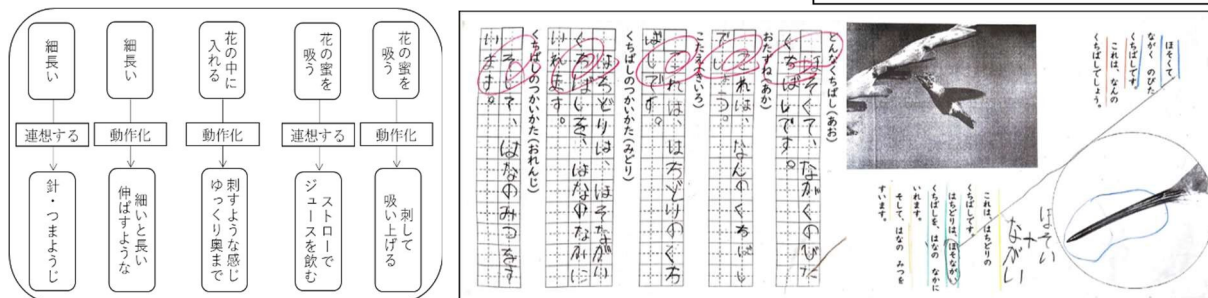 花の蜜を
吸う
動作化
刺して
吸い上げる
花の蜜を
吸う
連想する
ストローで
ジュースを飲む
花の中に
入れる
動作化
刺すような感じ
ゆっくり奥まで
細長い
動作化
細いと長い
伸ばすような
細長い
連想する
針・つまようじ
ほそくて、
ながく のびた
くちばしです。
これは、なんの
くちばしでしょう。
これは、はちどりの
くちばしです。
はちどりは、ほそながい
くちばしを、はなの なかに
いれます。
そして、はなの みつを
すいます。
ほそい
+
ながい
どんなくちばし(あお)
ほそくて、ながくのびた
くちばしです。
おたずね(あか)
これは、なんのくちばし
でしょう。
こたえ(きいろ)
これは、はちどりのくち
ばしです。
くちばしのつかいかた(みどり)
はちどりは、ほそながい
くちばしを、はなのなかに
いれます。
くちばしのつかいかた(おれんじ)
そして、はなのみつをす
います。